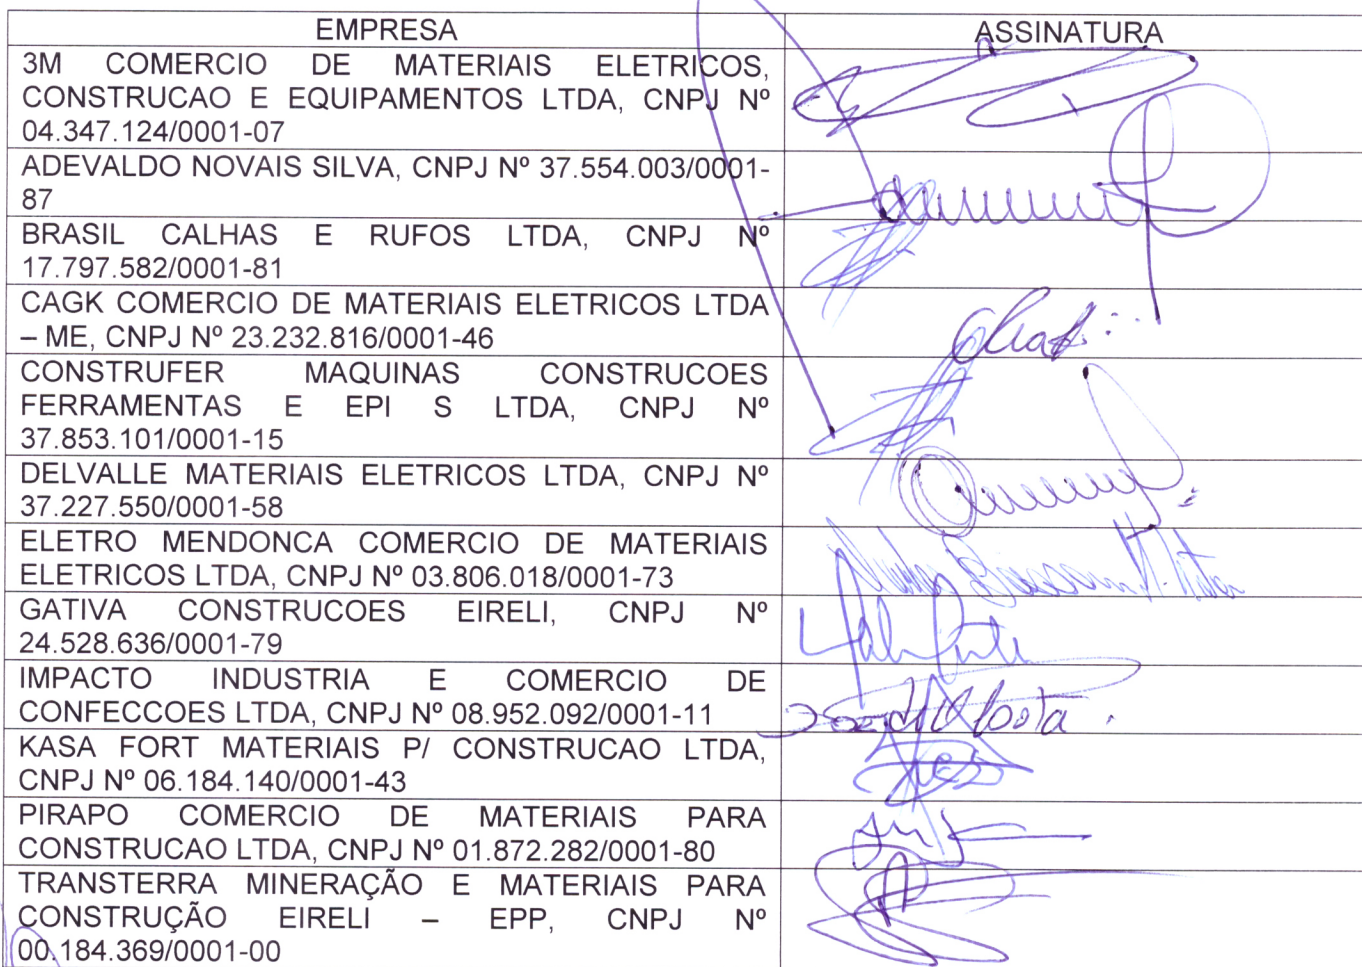 EMPRESA ASSINATURA
3M COMERCIO DE MATERIAIS ELETRICOS,
CONSTRUCAO E EQUIPAMENTOS LTDA, CNPJ Nº
04.347.124/0001-07
ADEVALDO NOVAIS SILVA, CNPJ Nº 37.554.003/0001-
87
BRASIL CALHAS E RUFOS LTDA, CNPJ Nº
17.797.582/0001-81
CAGK COMERCIO DE MATERIAIS ELETRICOS LTDA
– ME, CNPJ Nº 23.232.816/0001-46
CONSTRUFER MAQUINAS CONSTRUCOES
FERRAMENTAS E EPI S LTDA, CNPJ Nº
37.853.101/0001-15
DELVALLE MATERIAIS ELETRICOS LTDA, CNPJ Nº
37.227.550/0001-58
ELETRO MENDONCA COMERCIO DE MATERIAIS
ELETRICOS LTDA, CNPJ Nº 03.806.018/0001-73
GATIVA CONSTRUCOES EIRELI, CNPJ Nº
24.528.636/0001-79
IMPACTO INDUSTRIA E COMERCIO DE
CONFECCOES LTDA, CNPJ Nº 08.952.092/0001-11
KASA FORT MATERIAIS P/ CONSTRUCAO LTDA,
CNPJ Nº 06.184.140/0001-43
PIRAPO COMERCIO DE MATERIAIS PARA
CONSTRUCAO LTDA, CNPJ Nº 01.872.282/0001-80
TRANSTERRA MINERAÇÃO E MATERIAIS PARA
CONSTRUÇÃO EIRELI – EPP, CNPJ Nº
00.184.369/0001-00